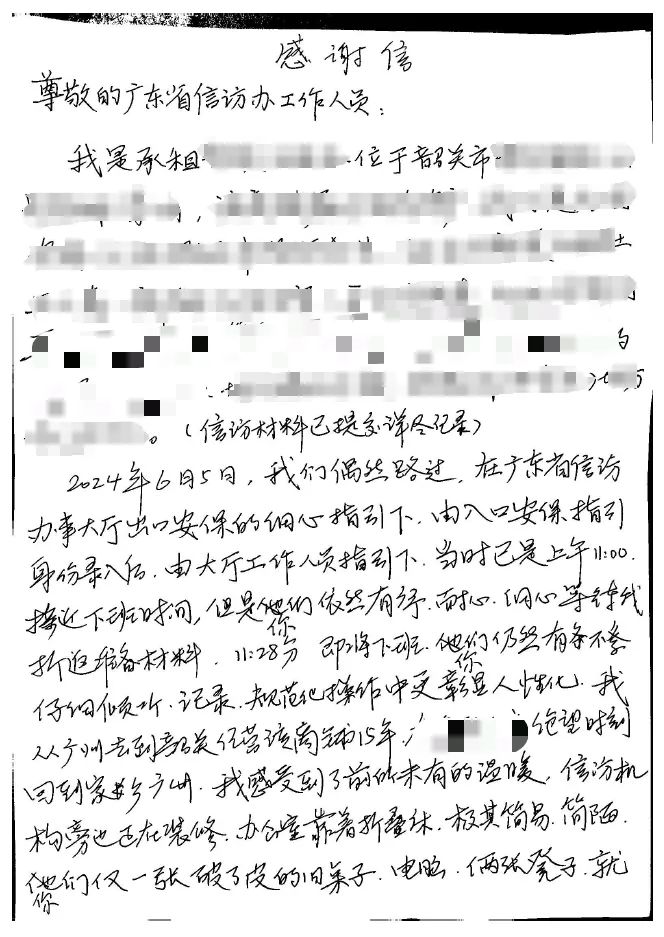 感谢信
尊敬的广东省信访办工作人员:
我是承租 位于韶关市
土
与
。(信访材料已提交详尽记录)
2024年6月5日,我们偶然路过,在广东省信访
办事大厅出口安保的细心指引下.由入口安保指引
身份录入后.由大厅工作人员指引下.当时已是上午11:00.
接近下班时间,但是他们依然有序.耐心.细心等待我
你
折返准备材料.11:28分 即将下班.他们仍然有条不紊
你
仔细倾听.记录.规范化操作中更彰显人性化.我
从广州去到韶关经营该商铺15年. 绝望时刻
回到家乡广州.我感受到了前所未有的温暖,信访机
构旁边还在装修.办公室靠着折叠床.极其简易.简陋.
他们仅一张破了皮的旧桌子.电脑.俩张凳子.就
你